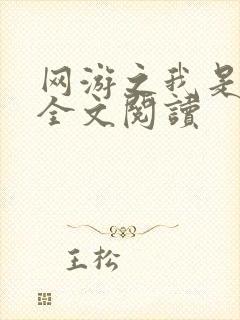 网游之我是
全文閱讀
王松